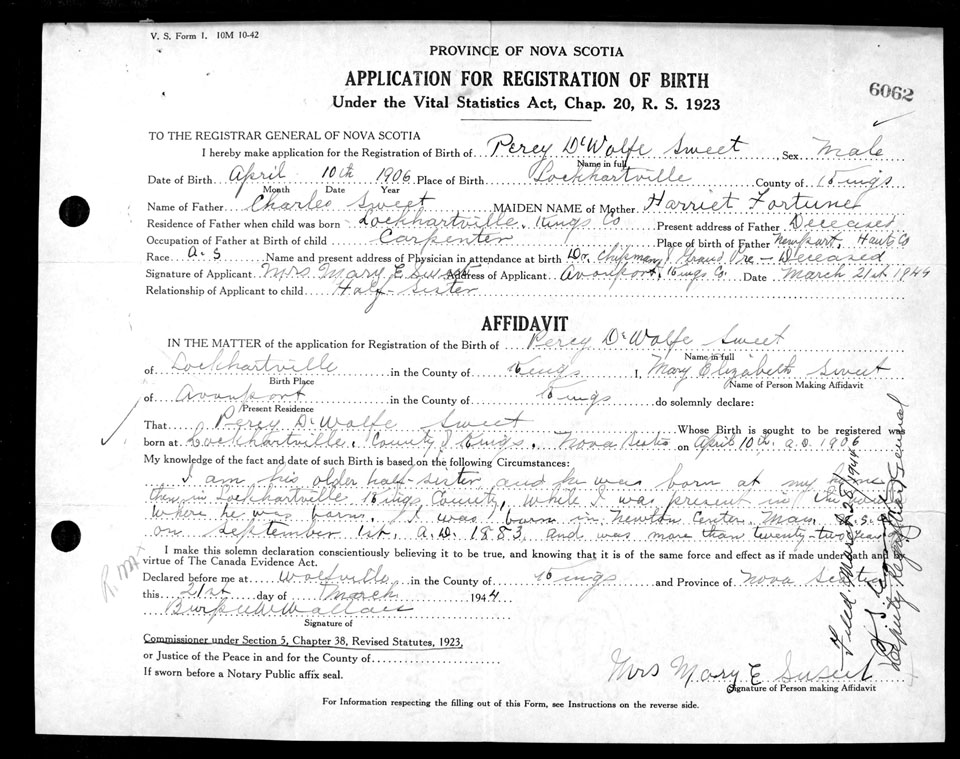 V. S. Form 1. 10M 10-42
PROVINCE OF NOVA SCOTIA
APPLICATION FOR REGISTRATION OF BIRTH
6062
Under the Vital Statistics Act, Chap. 20, R. S. 1923
TO THE REGISTRAR GENERAL OF NOVA SCOTIA
I hereby make application for the Registration of Birth of Percy DeWolfe Sweet Sex Male
Name in full
Date of Birth April 10th 1906 Place of Birth Lockhartville County of Kings
Month Date Year
Name of Father Charles Sweet MAIDEN NAME of Mother Harriet Fortune
Residence of Father when child was born Lockhartville, Kings Co Present address of Father Deceased
Occupation of Father at Birth of child Carpenter Place of Birth of Father Newport, Hants Co
Race A-S Name and present address of Physician in attendance at birth Dr. Chipman, Grand Pre - Deceased
Signature of Applicant Mrs. Mary E Sweet Address of Applicant Avonport, Kings Co. Date March 21st 1944
Relationship of Applicant to child Half-Sister
AFFIDAVIT
IN THE MATTER of the application for Registration of the Birth of Percy DeWolfe Sweet
Name in full
of Lockhartville in the County of Kings I, Mary Elizabeth Sweet
Birth Place Name of Person Making Affidavit
of Avonport in the County of Kings do solemnly declare:
Present Residence
That Percy DeWolfe Sweet Whose Birth is sought to be registered was
born at Lockhartville, County of Kings, Nova Scotia on April 10th, A.D. 1906
My knowledge of the fact and date of such Birth is based on the following Circumstances:
I am his older half-sister and he was born at my home
then in Lockhartville Kings County, while I was present in the
where he was born. I was born in Newton Center, Mass, U.S.A.
on September 1st, A.D. 1883, and was more than twenty-two years
I make this solemn declaration conscientiously believing it to be true, and knowing that it is of the same force and effect as if made under oath and
virtue of The Canada Evidence Act.
Declared before me at Wolfville in the County of Kings and Province of Nova Scotia
this 21st day of March 1944
Burpee Wallace
Signature of
Commissioner under Section 5, Chapter 38, Revised Statutes, 1923,
or Justice of the Peace in and for the County of
If sworn before a Notary Public affix seal.
Mrs Mary E Sweet
Signature of Person making Affidavit
For Information respecting the filling out of this Form, see Instructions on the reverse side.
Filed March 28/1944
Deputy Registrar General